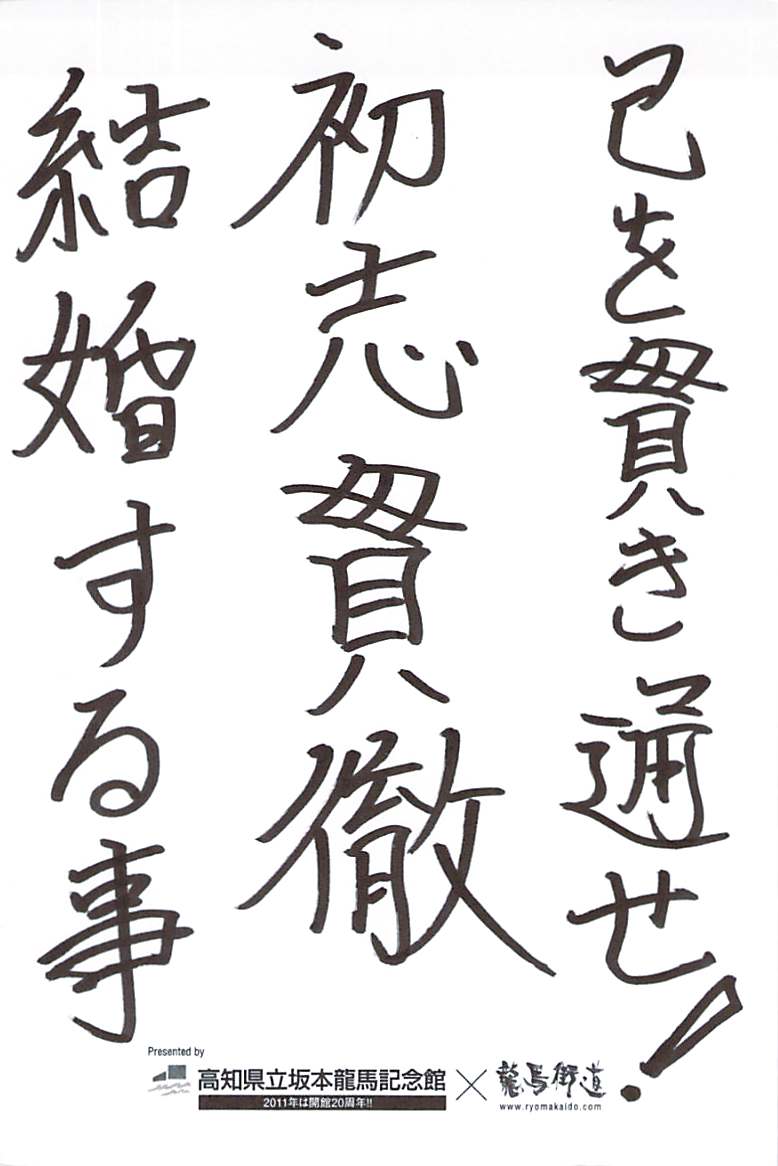 己を貫き通せ!
初志貫徹
結婚する事
Presented by
高知県立坂本龍馬記念館 × 龍馬街道
2011年は開館20周年!!
www.ryomakaido.com